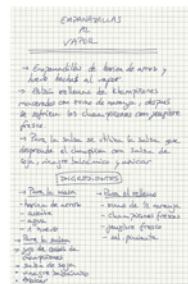 EMPANADILLAS
AL
VAPOR
→ Empanadillas de harina de arroz y
huevo hechas al vapor
→ Están rellenas de champiñones
macerados con zumo de naranja, después
se saltean los champiñones con jengibre
fresco
→ Para la salsa se utiliza la salsa que
desprende el champiñón con salsa de
soja, vinagre balsámico y azúcar
INGREDIENTES
→ Para la masa
- harina de arroz
- aceite
- agua
- 1 huevo
→ Para la salsa
- salsa de soja
- vinagre balsámico
- azúcar
→ Para el relleno
- zumo de ½ naranja
- champiñones frescos
- jengibre fresco
- sal, pimienta